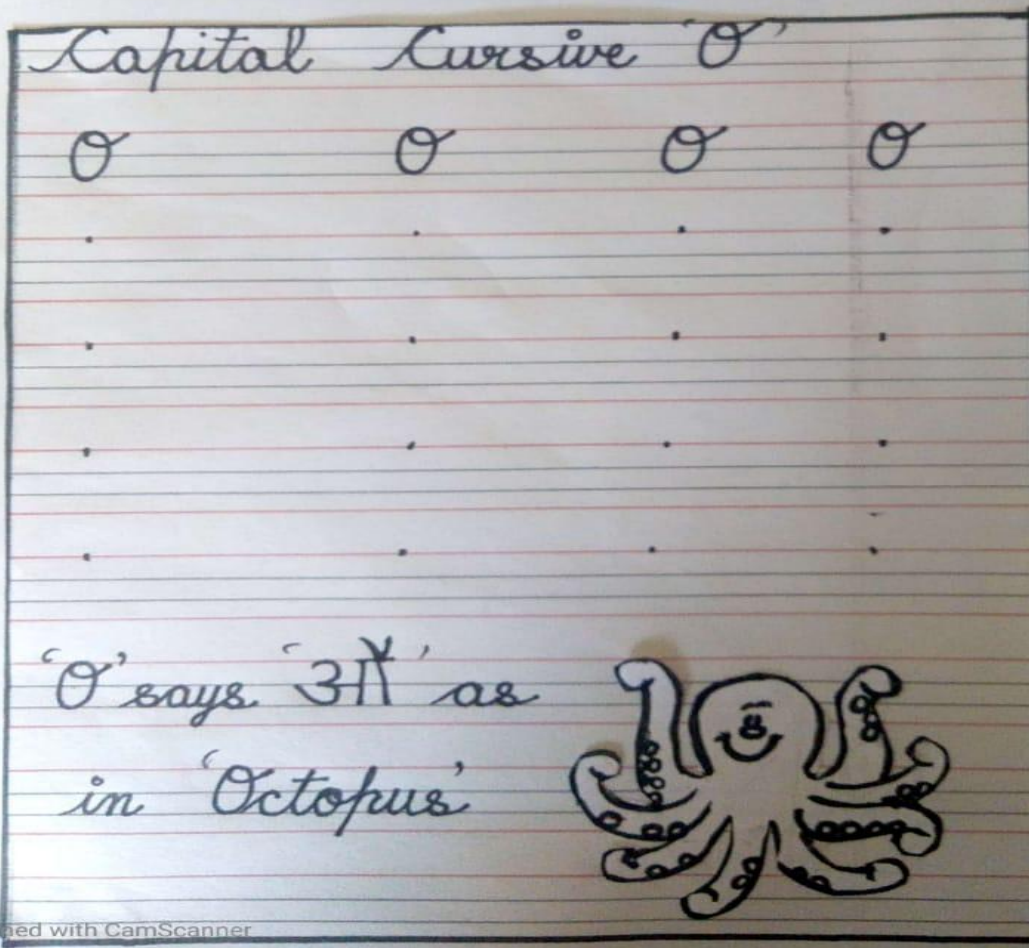 Capital Cursive 'O'
O O O O
'O' says 'ऑ' as
in 'Octopus'
ned with CamScanner